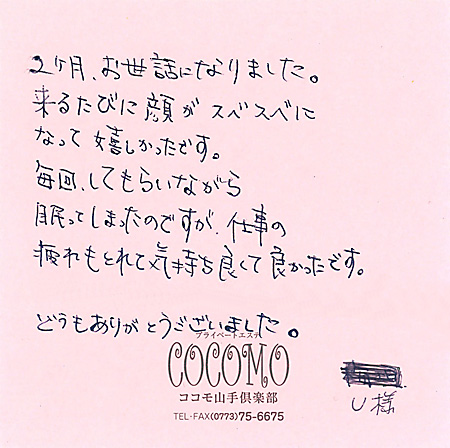 2ヶ月、お世話になりました。
来るたびに顔がスベスベに
なって嬉しかったです。
毎回、してもらいながら
眠ってしまったのですが、仕事の
疲れもとれて気持ち良くて良かったです。
どうもありがとうございました。
プライベートエステ
COCOMO
ココモ山手倶楽部
TEL・FAX(0773)75-6675
U様